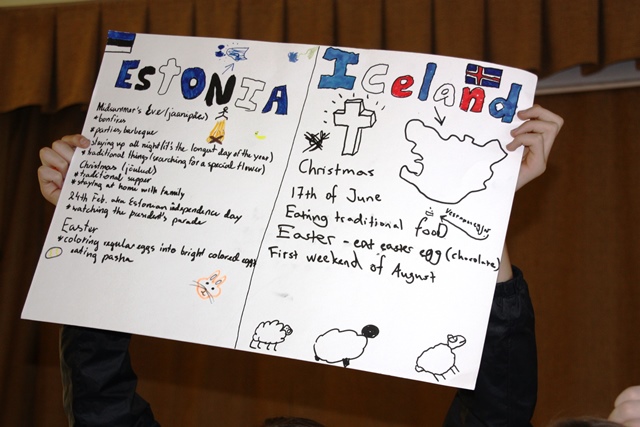 ESTONIA
Midsummer's Eve (jaanipäev)
* bonfires
* parties, barbeque
* staying up all night (it's the longest day of the year)
* traditional things (searching for a special flower)
Christmas (jõulud)
* traditional supper
* staying at home with family
24th Feb. aka Estonian independence day
* watching the president's parade
Easter
* coloring regular eggs into bright colored eggs
eating pasha
Iceland
Christmas
17th of June
Eating traditional food
Easter - eat easter egg (chocolate)
First weekend of August